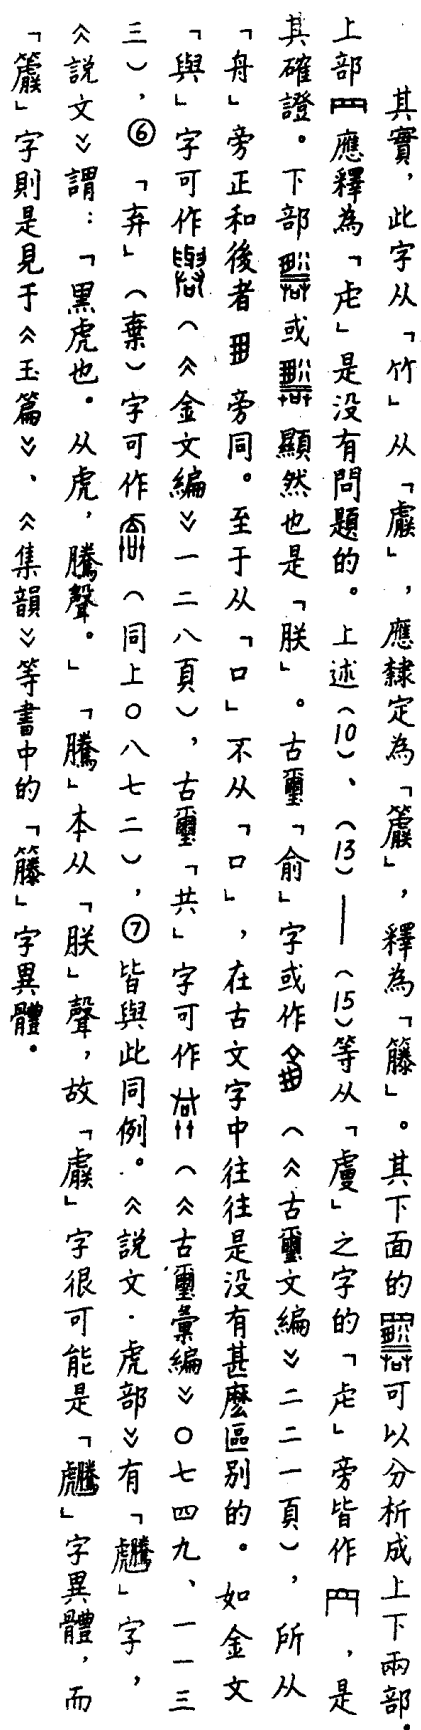 其實，此字从「竹」从「」，應隸定為「」，釋為「籐」。其下面的可以分析成上下兩部。
上部應釋為「虍」是没有問題的。上述（10）、（13）——（15）等从「虘」之字的「虍」旁皆作，是
其確證。下部或顯然也是「朕」。古璽「俞」字或作（《古璽文編》二二一頁），所从
「舟」旁正和後者旁同。至于从「口」不从「口」，在古文字中往往是没有甚麽區别的。如金文
「與」字可作（《金文編》一二八頁），古璽「共」字可作（《古璽彙編》〇七四九、一一三
三），⑥「弃」（棄）字可作（同上〇八七二），⑦皆與此同例。《説文·虎部》有「」字，
《説文》謂：「黑虎也。从虎，騰聲。」「騰」本从「朕」聲，故「」字很可能是「」字異體，而
「」字則是見于《玉篇》、《集韻》等書中的「籐」字異體。